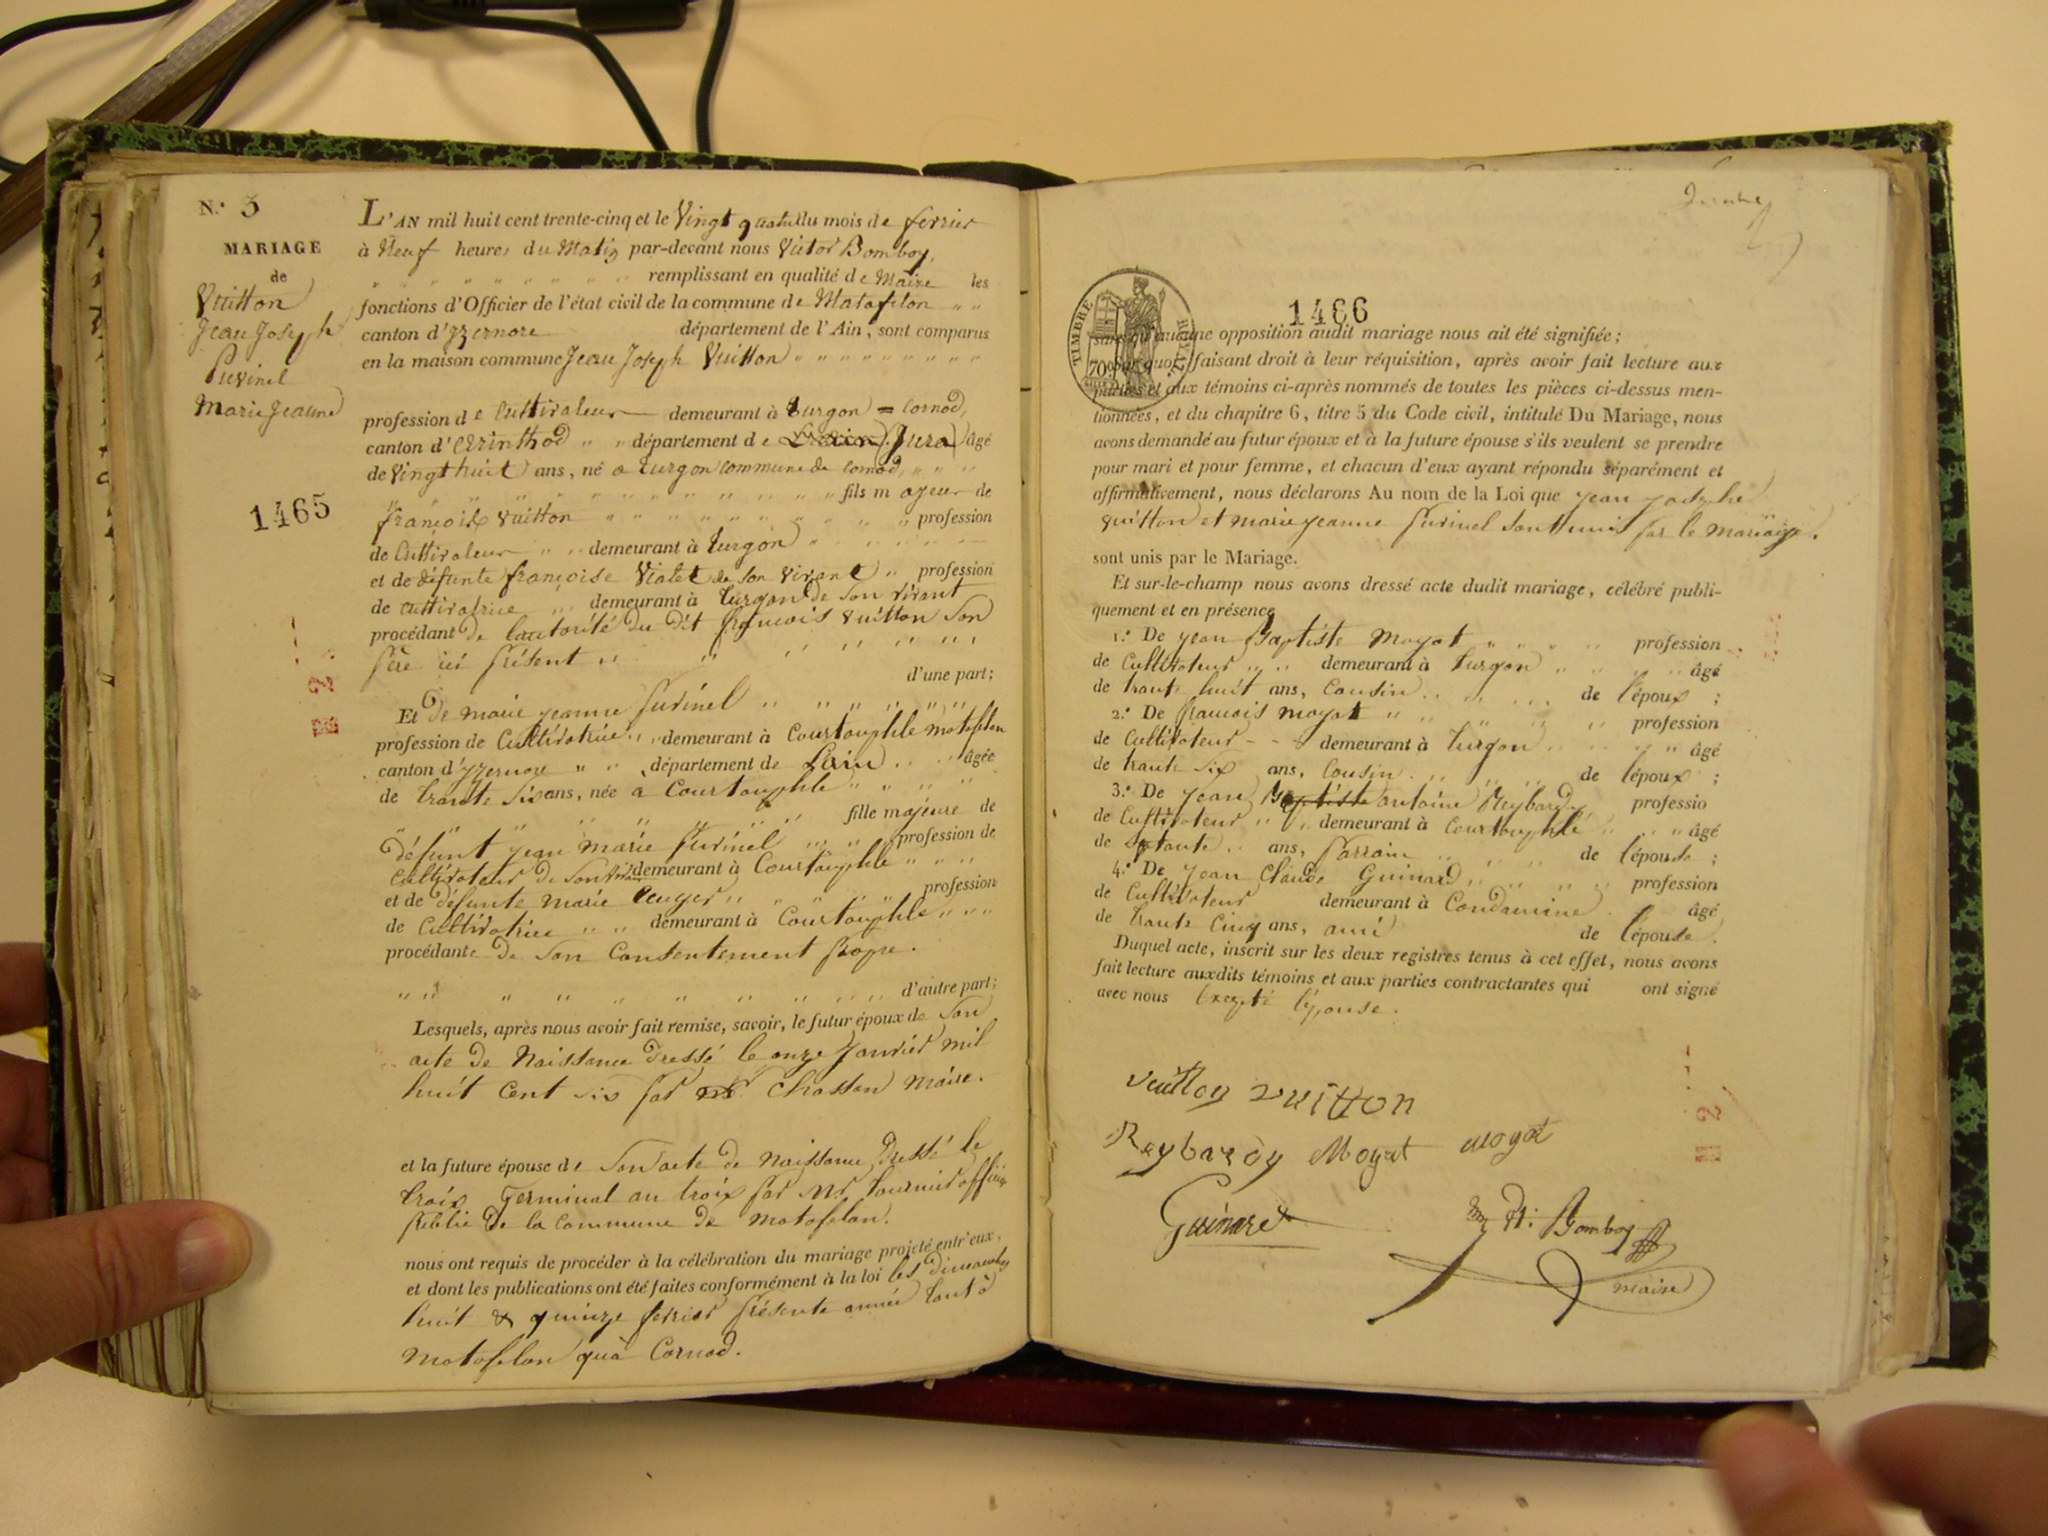 N.° 3
MARIAGE
de
Vuitton
Jean Joseph
Puvinel
Marie Jeanne
1465
L'AN mil huit cent trente-cinq et le Vingt quatre du mois de ferrier
à Neuf heures du Matin par-devant nous Victor Bomboy,
remplissant en qualité de Maire les
fonctions d'Officier de l'état civil de la commune de Matafelon
canton d'Yzernore département de l'Ain, sont comparus
en la maison commune Jean Joseph Vuitton
profession de Cultivateur demeurant à turgon = Cornod,
canton d'Arinthod département de L'ain (Jura) âgé
de Vingt huit ans, né a turgon commune de Cornod,
fils majeur de
françois Vuitton profession
de Cultivateur demeurant à turgon
et de défunte françoise Vialet de son Vivant profession
de cultivatrice demeurant à turgon de son vivant
procédant de lautorité du dit françois Vuitton son
père ici présent
d'une part;
Et de marie jeanne purinel
profession de Cultivatrice demeurant à Courtouphle matafelon
canton d'yzernore département de Lain âgée
de trante six ans, née a Courtouphle
fille majeure de
défunt jean marie purinel profession de
Cultivateur de son vivant demeurant à Courtouphle
et de défunte marie profession
de Cultivatrice demeurant à Courtouphle
procédante de son Consentement propre.
d'autre part;
Lesquels, après nous avoir fait remise, savoir, le futur époux de son
acte de Naissance dressé le onze janvier mil
huit cent six par mr. Chassan maire.
et la future épouse de son acte de naissance dressé le
trois germinal an troix par mr tournier officier
public de la commune de matafelan.
nous ont requis de procéder à la célébration du mariage projeté entr'eux,
et dont les publications ont été faites conformément à la loi les dimanches
huit & quinze ferrier présente année tant à
matafelan qu'à Cornod.
1466
TIMBRE ROYAL
70
sans qu'aucune opposition audit mariage nous ait été signifiée;
Sur quoi, faisant droit à leur réquisition, après avoir fait lecture aux
parties et aux témoins ci-après nommés de toutes les pièces ci-dessus men-
tionnées, et du chapitre 6, titre 5 du Code civil, intitulé Du Mariage, nous
avons demandé au futur époux et à la future épouse s'ils veulent se prendre
pour mari et pour femme, et chacun d'eux ayant répondu séparément et
affirmativement, nous déclarons Au nom de la Loi que jean josephe
vuitton et marie jeanne purinel sont unis par le mariage.
sont unis par le Mariage.
Et sur-le-champ nous avons dressé acte dudit mariage, célébré publi-
quement et en présence
1.° De jean Baptiste moyat profession
de Cultivateur demeurant à turgon âgé
de trante huit ans, Cousin de l'époux ;
2.° De francois moyat profession
de Cultivateur demeurant à turgon âgé
de trante six ans, Cousin de l'époux ;
3.° De jean Baptiste antoine Reybard profession
de Cultivateur demeurant à courtouphle âgé
de septante ans, parrain de l'épouse ;
4.° De jean Claude Guinard profession
de Cultivateur demeurant à Condamine âgé
de trante Cinq ans, ami de l'épouse.
Duquel acte, inscrit sur les deux registres tenus à cet effet, nous avons
fait lecture auxdits témoins et aux parties contractantes qui ont signé
avec nous Excepté lépouse.
Vuitton Vuitton
Reybardy Moyat moyat
Guinard
Vt. Bomboy
maire